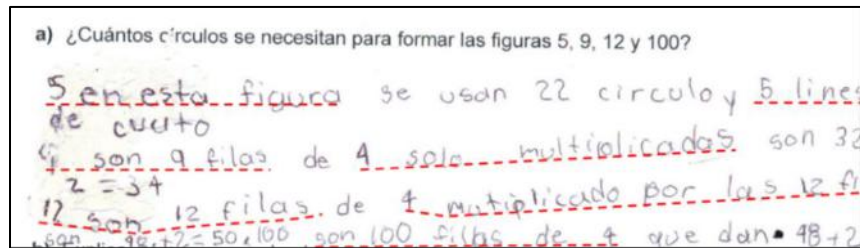 a) ¿Cuántos círculos se necesitan para formar las figuras 5, 9, 12 y 100?
5 en esta figura se usan 22 circulo y 5 lines
de cuato
son 9 filas de 4 solo multiplicadas son 32
2 = 34
12 son 12 filas de 4 mutiplicado por las 12 fi
son 48+2=50, 100 son 100 filas de 4 que dan 48+2